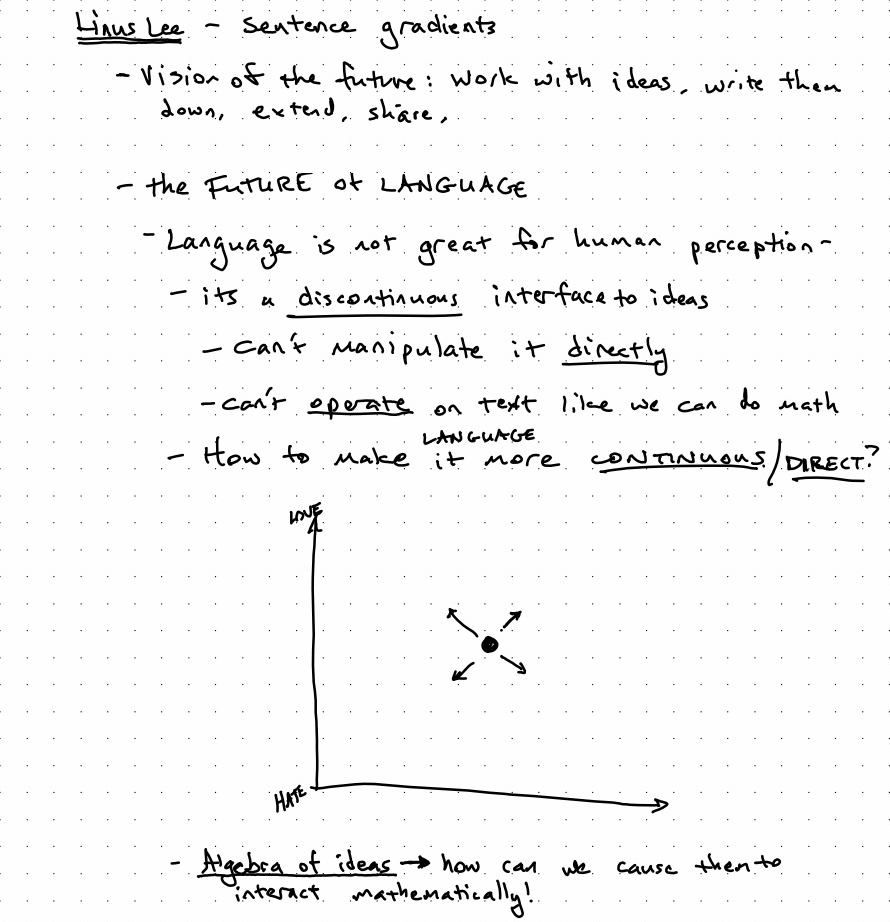 Linus Lee - Sentence gradients
- Vision of the future: Work with ideas, write them
down, extend, share,
- the FUTURE of LANGUAGE
- Language is not great for human perception -
- its a discontinuous interface to ideas
- Can't manipulate it directly
- can't operate on text like we can do math
LANGUAGE
- How to make it more CONTINUOUS/DIRECT?
LOVE
HATE
- Algebra of ideas → how can we cause them to
interact mathematically!